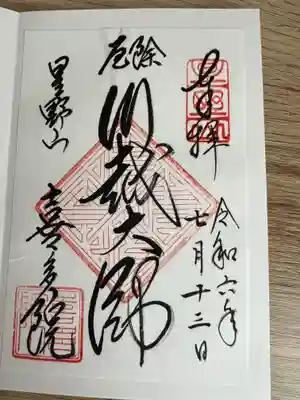 奉拝
令和六年
七月十三日
厄除
川越大師
星野山
喜多院